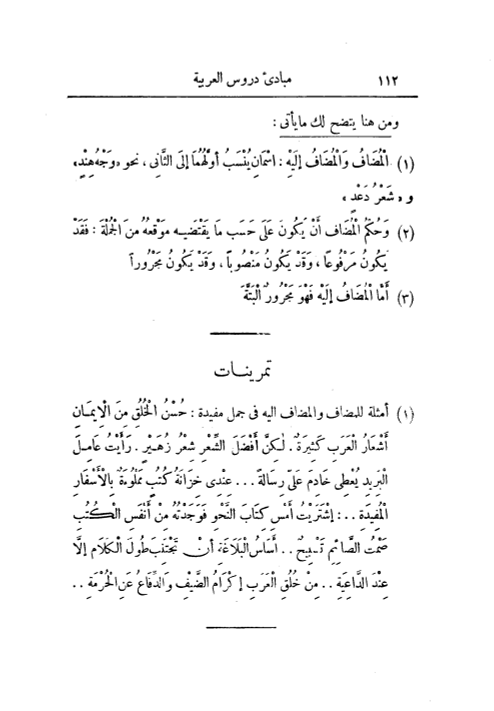 ١١٢ مبادئ دروس العربية
ومن هنا يتضح لك مايأتى :
(١) الْمُضَافُ وَالْمُضَافُ إِلَيْهِ : اسْمَانِ يُنْسَبُ أَوَّلُهُمَا إِلَى الثَّانِى ، نحو «وَجْهُ هِنْدٍ»
و «شَعْرُ دَعْدٍ»
(٢) وَحُكْمُ الْمُضَافِ أَنْ يَكُونَ عَلَى حَسَبِ مَا يَقْتَضِيهِ مَوْقِعُهُ مِنَ الْجُمْلَةِ : فَقَدْ
يَكُونُ مَرْفُوعًا ، وَقَدْ يَكُونُ مَنْصُوبًا ، وَقَدْ يَكُونُ مَجْرُورًا
(٣) أَمَّا الْمُضَافُ إِلَيْهِ فَهْوَ مَجْرُورٌ الْبَتَّةَ
تمرينات
(١) أمثلة للمضاف والمضاف اليه فى جمل مفيدة : حُسْنُ الْخُلُقِ مِنَ الْإِيمَانِ
أَشْعَارُ الْعَرَبِ كَثِيرَةٌ . لٰكِنَّ أَفْضَلَ الشِّعْرِ شِعْرُ زُهَيْرٍ . رَأَيْتُ عَامِلَ
الْبَرِيدِ يُعْطِى خَادِمَ عَلِىٍّ رِسَالَةً ... عِنْدِى خِزَانَةُ كُتُبٍ مَمْلُوءَةٌ بِالْأَسْفَارِ
الْمُفِيدَةِ .. : إِشْتَرَيْتُ أَمْسِ كِتَابَ النَّحْوِ فَوَجَدْتُهُ مِنْ أَنْفَسِ الْكُتُبِ
صَمْتُ الصَّائِمِ تَسْبِيحٌ .. أَسَاسُ الْبَلَاغَةِ أَنْ تَجْتَنِبَ طُولَ الْكَلَامِ إِلَّا
عِنْدَ الدَّاعِيَةِ .. مِنْ خُلُقِ الْعَرَبِ إِكْرَامُ الضَّيْفِ وَالدِّفَاعُ عَنِ الْحُرْمَةِ ..